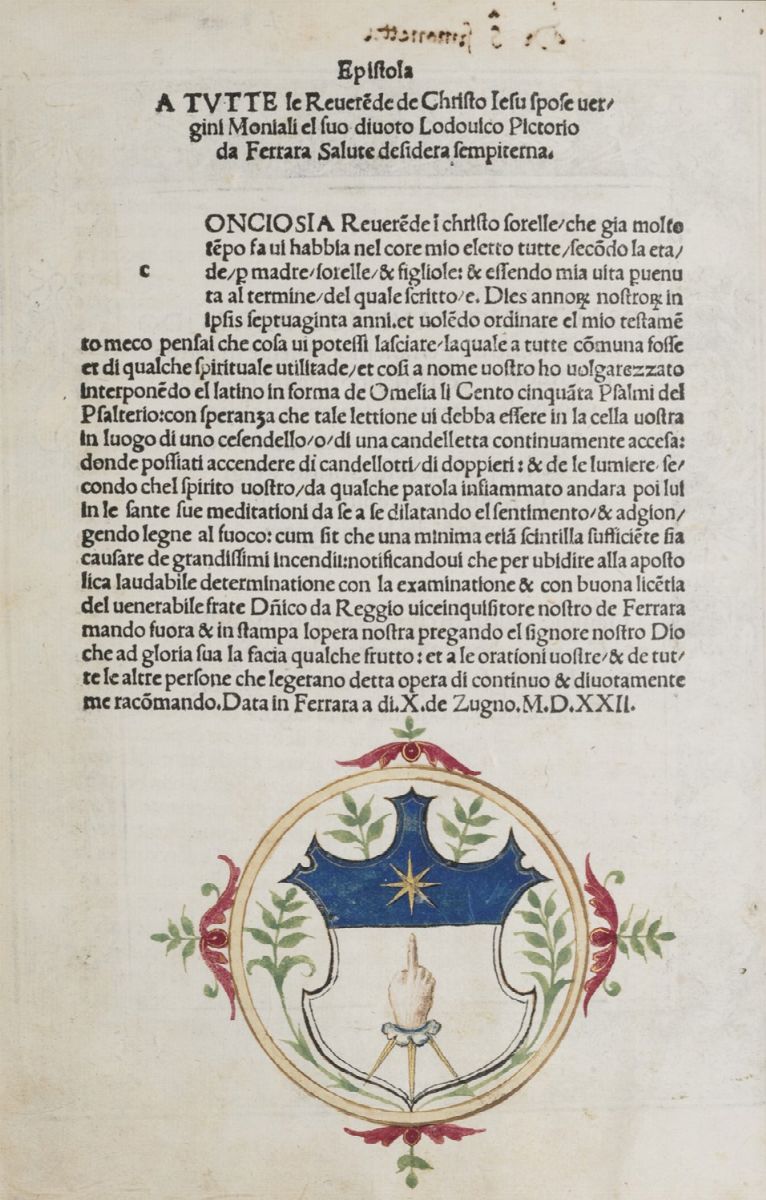 Epistola
A TVTTE le Reuerēde de Christo Iesu spose uer/
gini Moniali el suo diuoto Lodouico Pictorio
da Ferrara Salute desidera sempiterna.
ONCIOSIA Reuerēde ī christo sorelle/che gia molto
tēpo fa ui habbia nel core mio eletto tutte/secōdo la eta/
c de/ꝑ madre/sorelle/& figliole: & essendo mia uita puenu
ta al termine/del quale scritto/e. Dies annoꝝ nostroꝝ in
ipsis septuaginta anni.et uolēdo ordinare el mio testamē
to meco pensai che cosa ui potessi lasciare/laquale a tutte cōmuna fosse
et di qualche spirituale utilitade/et cosi a nome uostro ho uolgarezzato
interponēdo el latino in forma de Omelia li Cento cinquāta Psalmi del
Psalterio:con speranza che tale lettione ui debba essere in la cella uostra
in luogo di uno cesendello/o/di una candelletta continuamente accesa:
donde possiati accendere di candellotti/di doppieri: & de le lumiere se/
condo chel spirito uostro/da qualche parola infiammato andara poi lui
in le sante sue meditationi da se a se dilatando el sentimento/& adgion/
gendo legne al fuoco: cum sit che una minima etiā scintilla sufficiēte sia
causare de grandissimi incendii:notificandoui che per ubidire alla aposto
lica laudabile determinatione con la examinatione & con buona licētia
del uenerabile frate Dñico da Reggio uiceinquisitore nostro de Ferrara
mando fuora & in stampa lopera nostra pregando el signore nostro Dio
che ad gloria sua la facia qualche frutto: et a le orationi uostre/& de tut/
te le altre persone che legerano detta opera di continuo & diuotamente
me racōmando.Data in Ferrara a di.X.de Zugno.M.D.XXII.